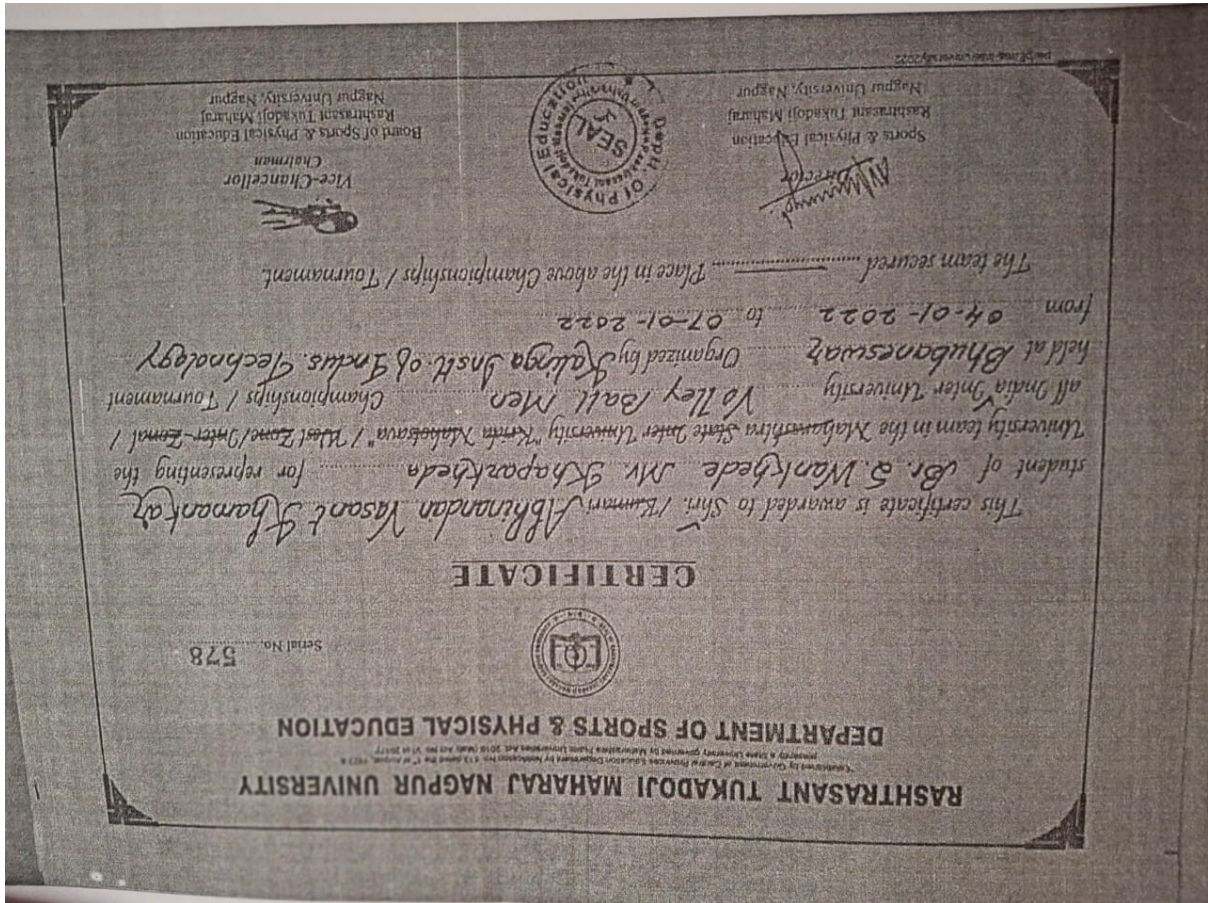 RASHTRASANT TUKADOJI MAHARAJ NAGPUR UNIVERSITY
DEPARTMENT OF SPORTS & PHYSICAL EDUCATION
Serial No. 578
CERTIFICATE
This certificate is awarded to Shri. / Kumari Abhinandan Vasant Khamankar
student of Br. S. Wankhede Mv. Khaparkheda for representing the
University team in the Maharashtra State Inter University "Krida Mahotsava" / West Zone/Inter-Zonal /
all India Inter University Volley Ball Men Championships / Tournament
held at Bhubaneswar Organized by Kalinga Instt. of Indus. Technology
from 04-01-2022 to 07-01-2022
The team secured Place in the above Championships / Tournament.
Director
Sports & Physical Education
Rashtrasant Tukadoji Maharaj
Nagpur University, Nagpur
Deptt. Of Physical Education
SEAL
Vice-Chancellor
Chairman
Board of Sports & Physical Education
Rashtrasant Tukadoji Maharaj
Nagpur University, Nagpur